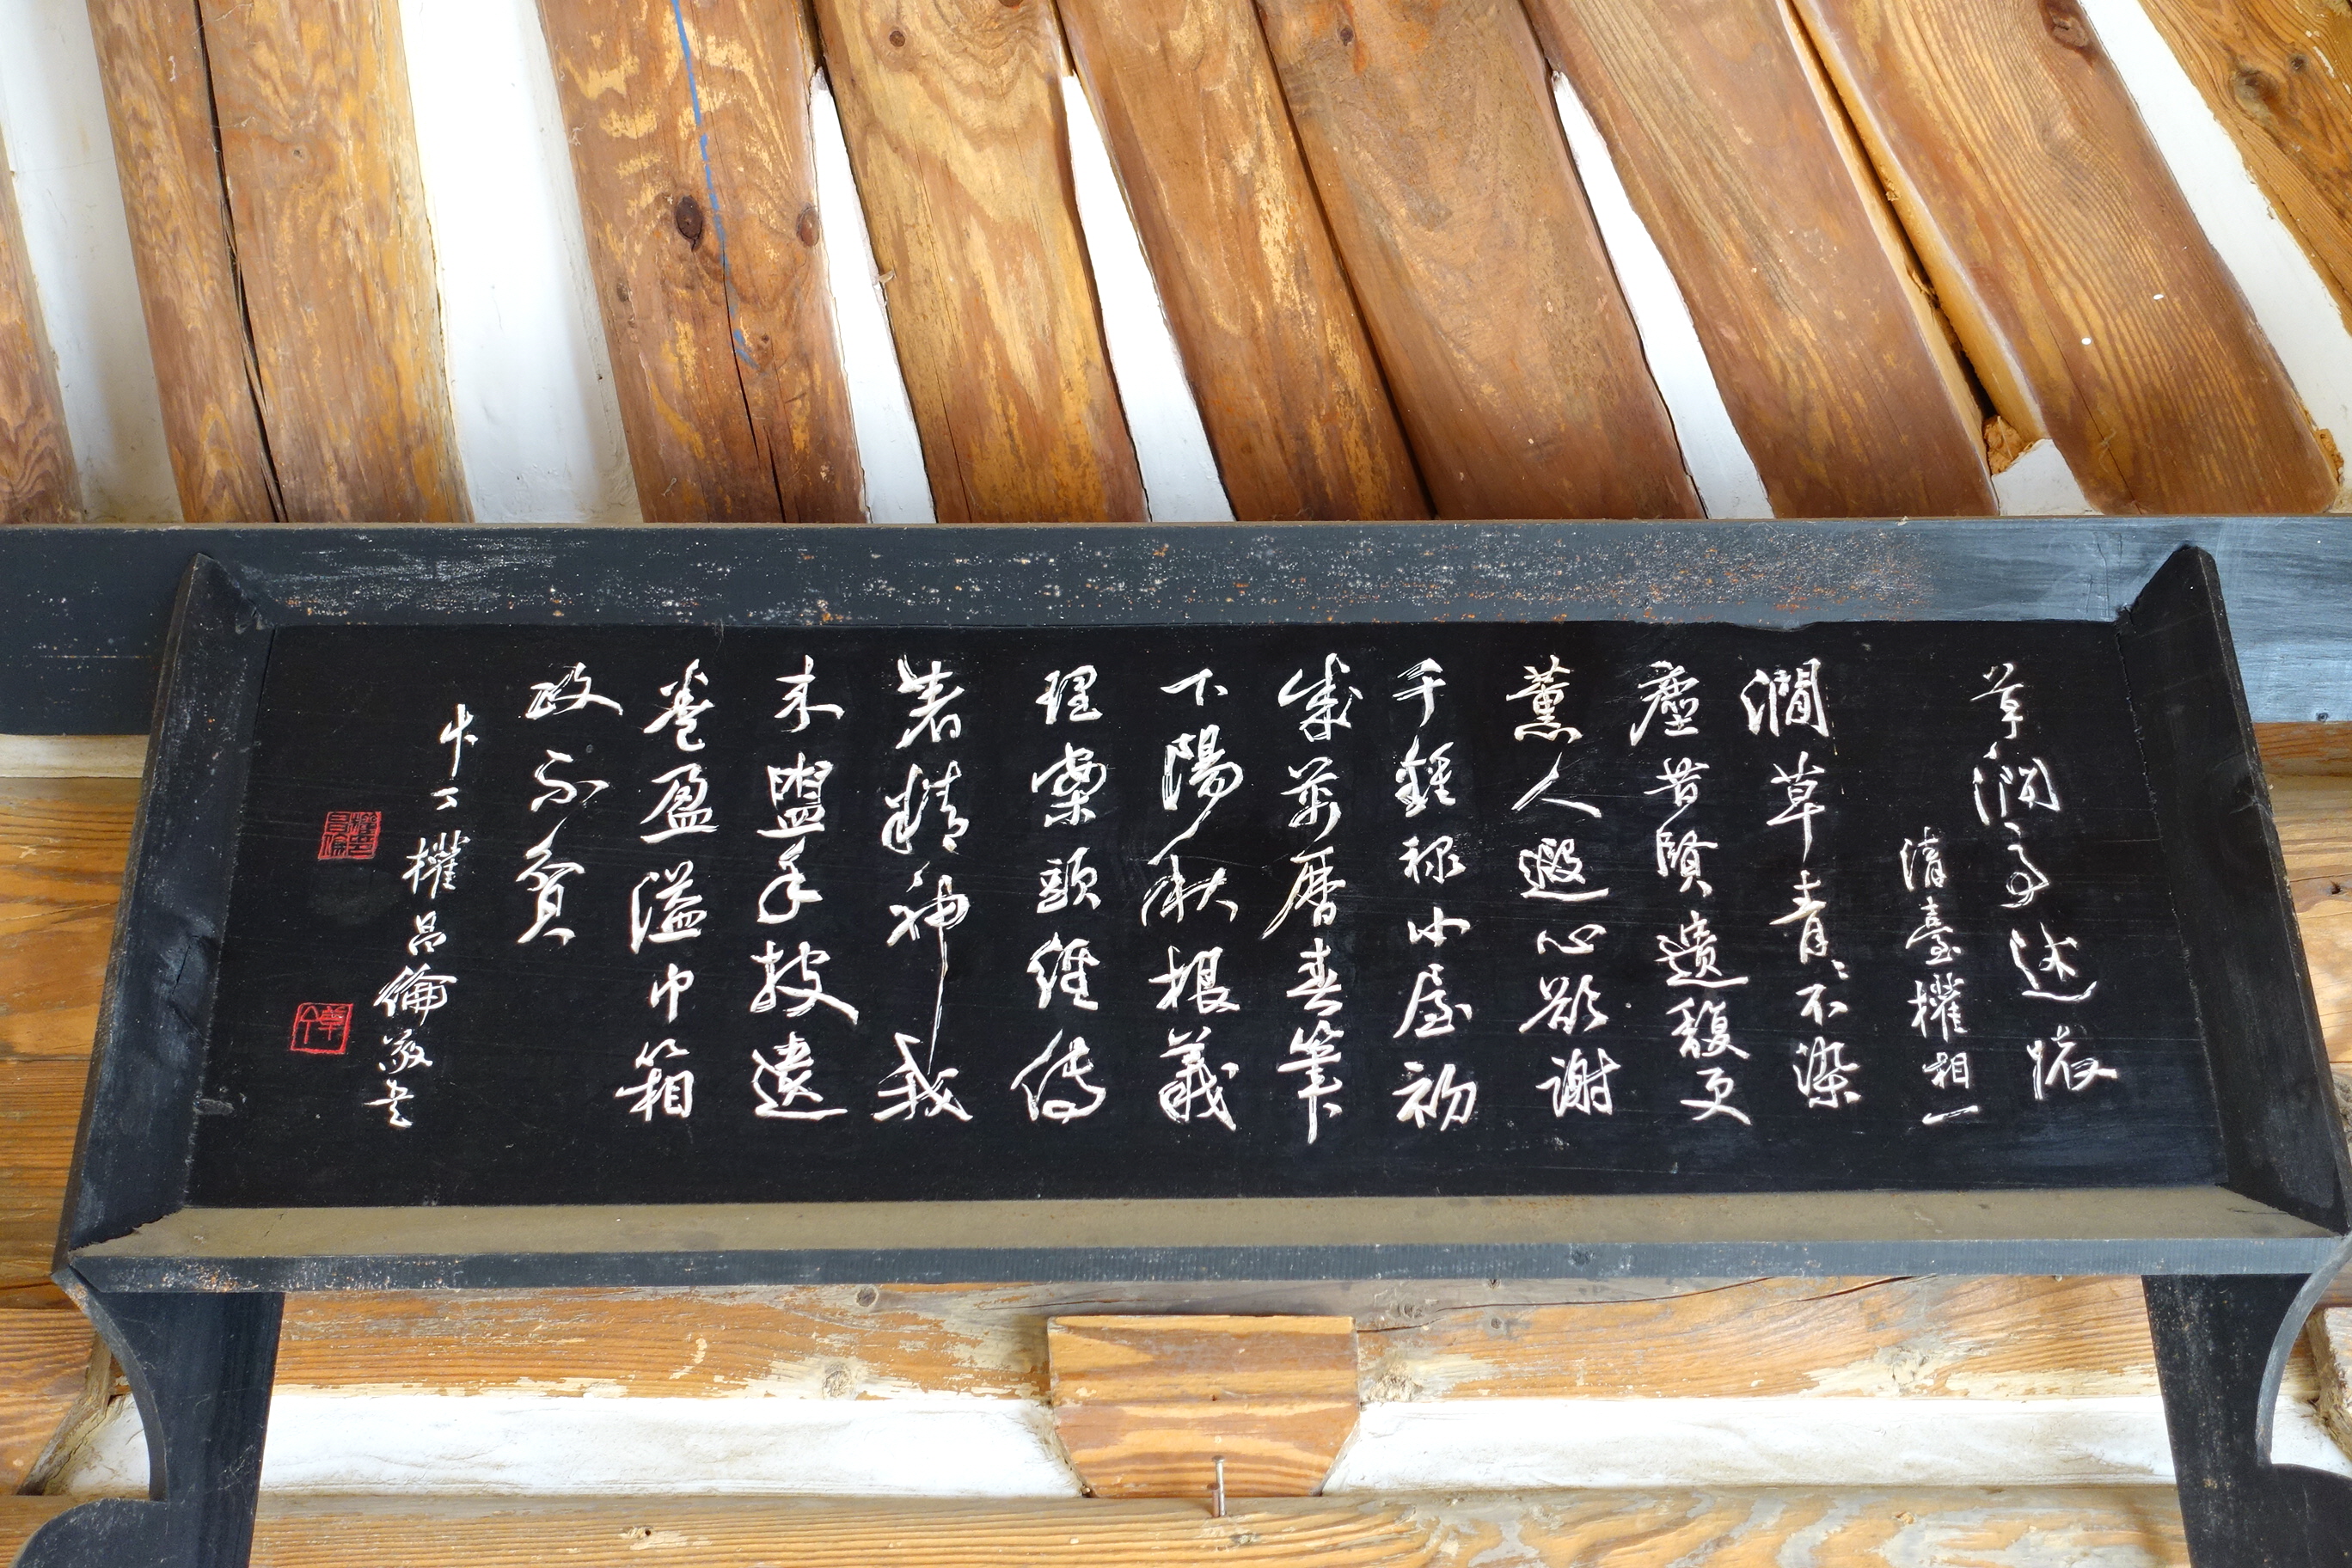 草澗亭述懷
淸臺權相一
澗草青〻不染
塵昔賢遺馥更
薰人遐心欲謝
千鍾祿小屋初
成萬曆春筆
下陽秋根義
理案頭經傳
著精神我
來盥手披遺
卷盈溢巾箱
政不貧
權昌倫敬書